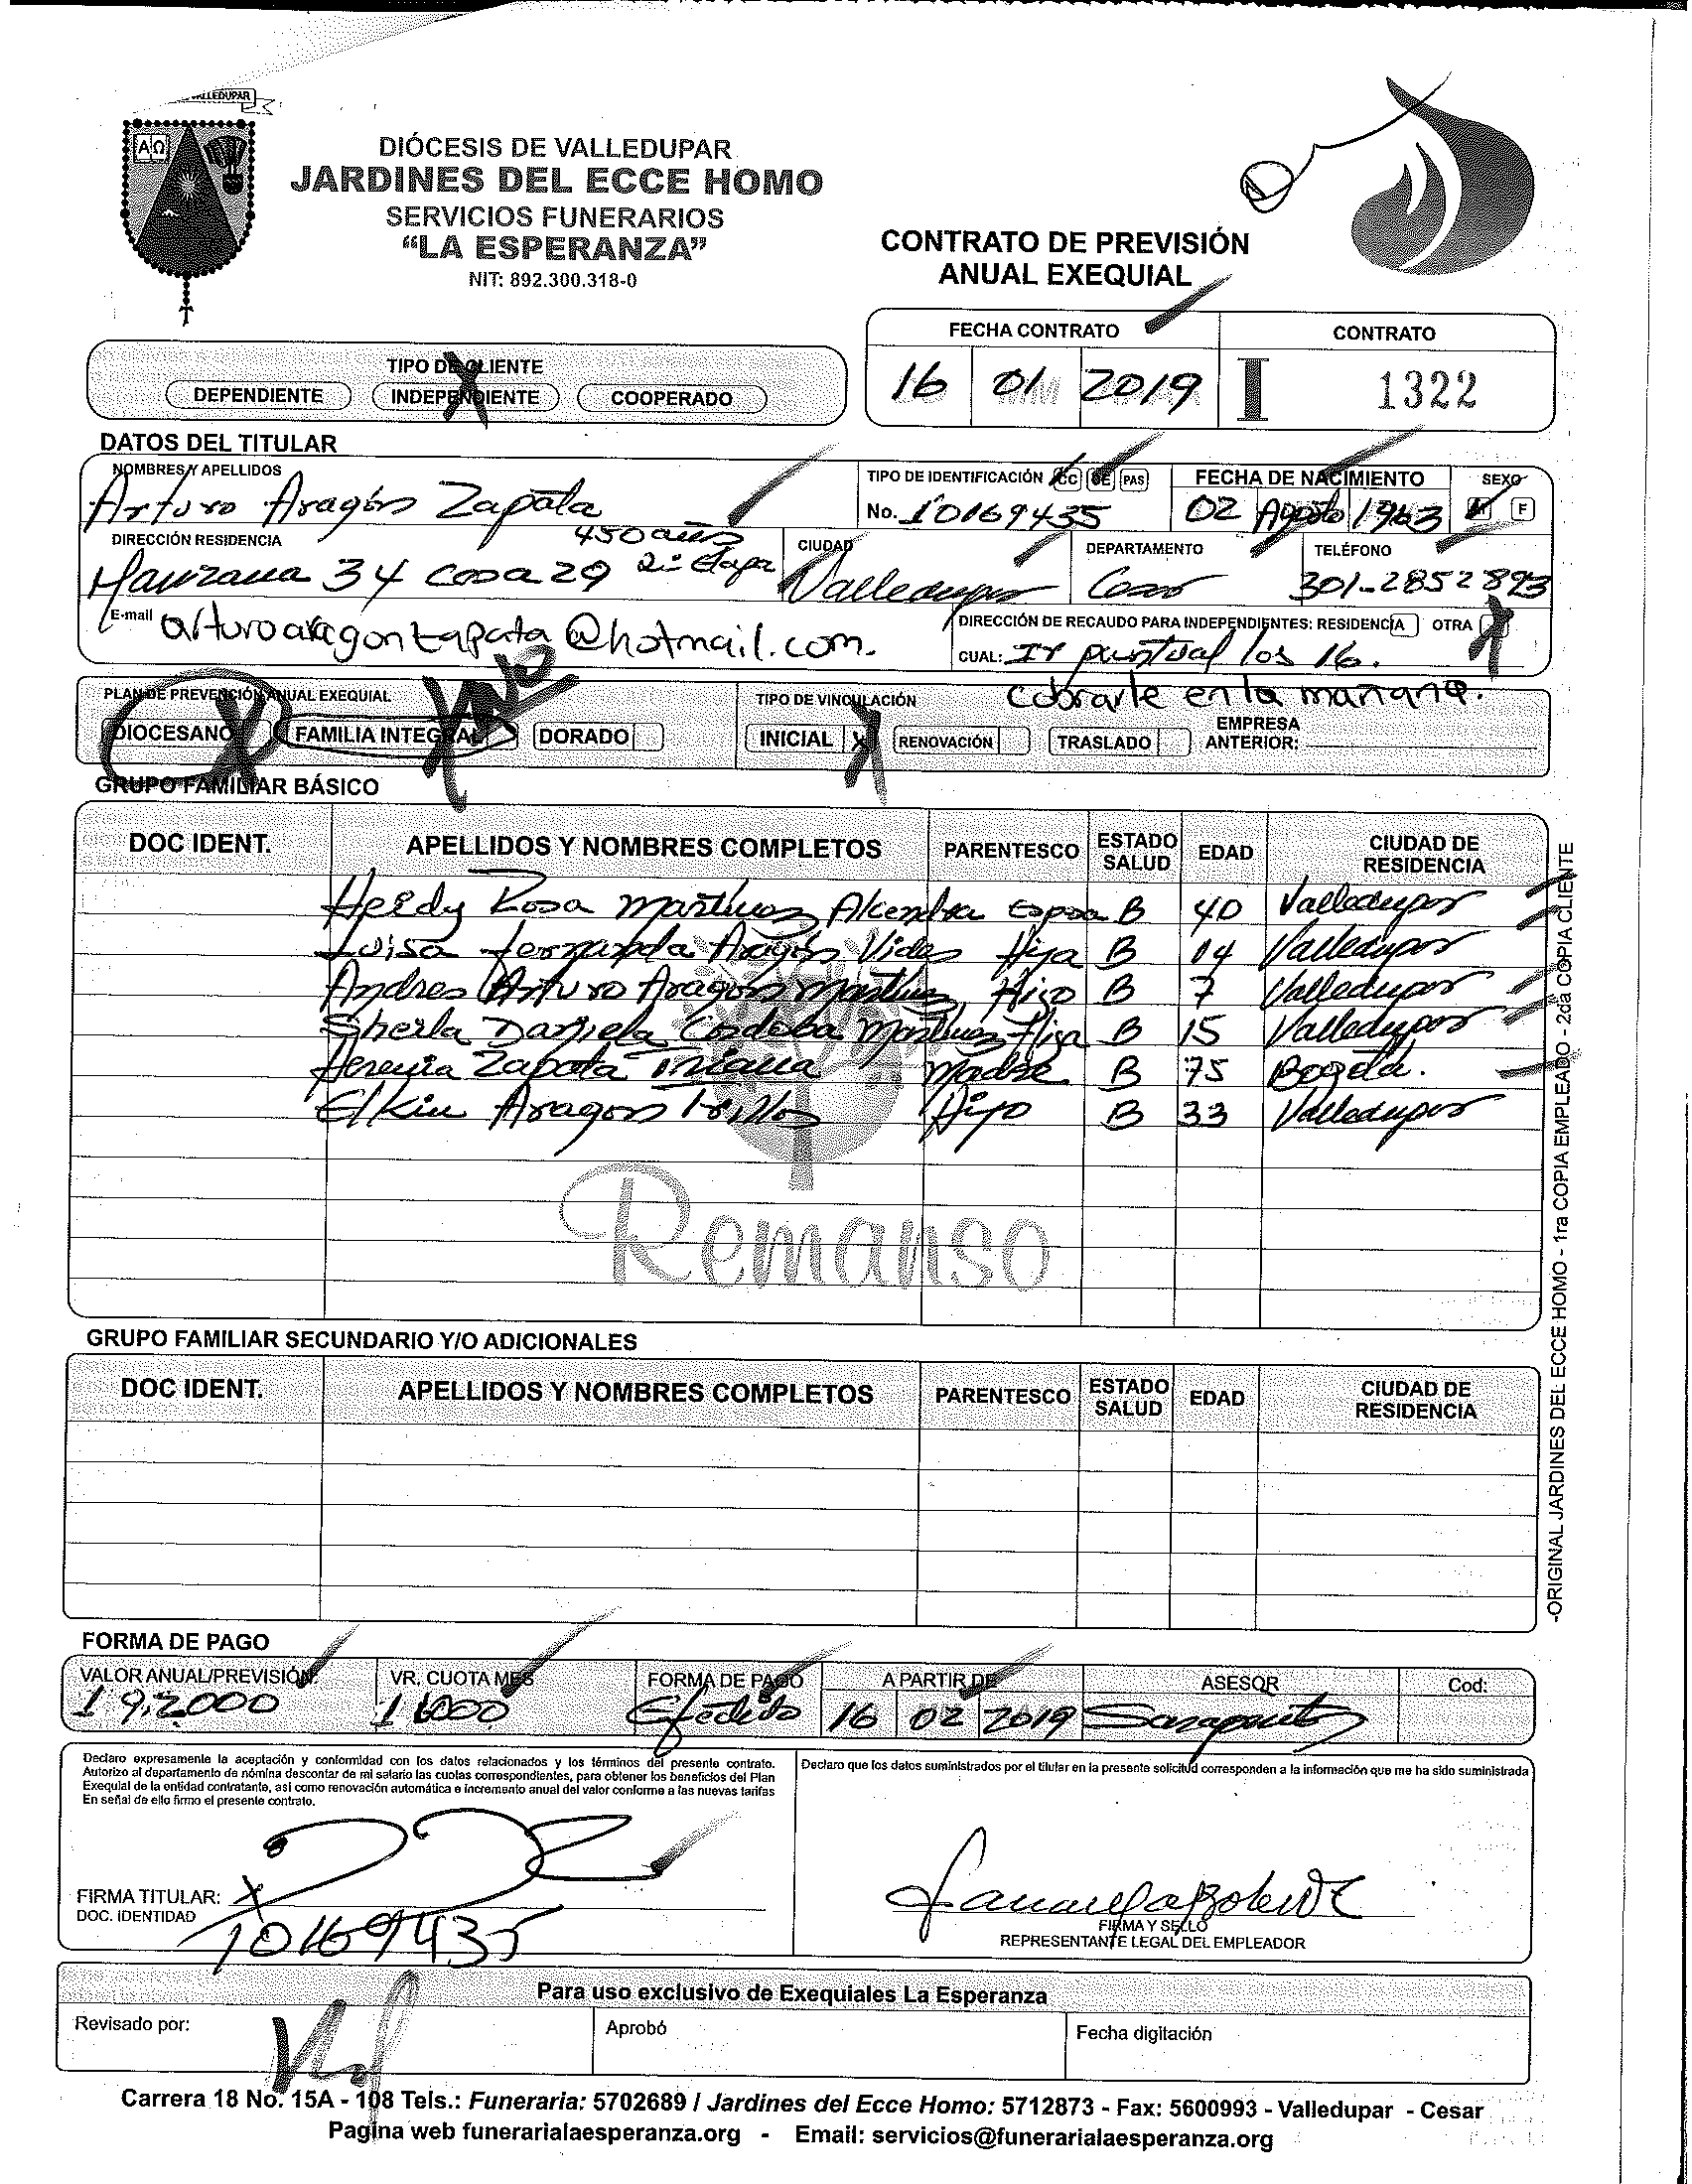 VALLEDUPAR
DIÓCESIS DE VALLEDUPAR
JARDINES DEL ECCE HOMO
SERVICIOS FUNERARIOS
"LA ESPERANZA"
NIT: 892.300.318-0
CONTRATO DE PREVISIÓN
ANUAL EXEQUIAL
FECHA CONTRATO CONTRATO
16 01 2019 I 1322
TIPO DE CLIENTE
DEPENDIENTE INDEPENDIENTE X COOPERADO
DATOS DEL TITULAR
NOMBRES Y APELLIDOS
Arturo Aragón Zapata
TIPO DE IDENTIFICACIÓN CC CE PAS
No. 10169435
FECHA DE NACIMIENTO
02 Agosto 1963
SEXO
M F
DIRECCIÓN RESIDENCIA
450 años
Manzana 34 Casa 29 2a Etapa
CIUDAD
Valledupar
DEPARTAMENTO
Cesar
TELÉFONO
301-2852893
E-mail arturoaragonzapata@hotmail.com.
DIRECCIÓN DE RECAUDO PARA INDEPENDIENTES: RESIDENCÍA OTRA X
CUAL: Ir puntual los 16.
Cobrarle en la mañana.
PLAN DE PREVENCIÓN ANUAL EXEQUIAL
DIOCESANO X FAMILIA INTEGRAL NO DORADO
TIPO DE VINCULACIÓN
INICIAL X RENOVACIÓN TRASLADO EMPRESA ANTERIOR:
GRUPO FAMILIAR BÁSICO
DOC IDENT. APELLIDOS Y NOMBRES COMPLETOS PARENTESCO ESTADO SALUD EDAD CIUDAD DE RESIDENCIA
Heidy Rosa Martinez Alcendra Esposa B 40 Valledupar
Luisa Fernanda Aragón Vides Hija B 04 Valledupar
Andres Arturo Aragón Martinez Hijo B 7 Valledupar
Sheila Daniela Cordoba Martinez Hija B 15 Valledupar
Zapata Triana Madre B 75 Bogotá.
Elkin Aragon Hijo B 33 Valledupar
Remanso
GRUPO FAMILIAR SECUNDARIO Y/O ADICIONALES
DOC IDENT. APELLIDOS Y NOMBRES COMPLETOS PARENTESCO ESTADO SALUD EDAD CIUDAD DE RESIDENCIA
-ORIGINAL JARDINES DEL ECCE HOMO - 1ra COPIA EMPLEADO - 2da COPIA CLIENTE
FORMA DE PAGO
VALOR ANUAL/PREVISIÓN VR. CUOTA MES FORMA DE PAGO A PARTIR DE ASESOR Cod:
192000 16000 Efectivo 16 02 2019
Declaro expresamente la aceptación y conformidad con los datos relacionados y los términos del presente contrato.
Autorizo al departamento de nómina descontar de mi salario las cuotas correspondientes, para obtener los beneficios del Plan
Exequial de la entidad contratante, asi como renovación automática e incremento anual del valor conforme a las nuevas tarifas
En señal de ello firmo el presente contrato.
Declaro que los datos suministrados por el titular en la presente solicitud corresponden a la información que me ha sido suministrada
FIRMA TITULAR: X
DOC. IDENTIDAD
10169435
FIRMA Y SELLO
REPRESENTANTE LEGAL DEL EMPLEADOR
Para uso exclusivo de Exequiales La Esperanza
Revisado por: Aprobó Fecha digitación
Carrera 18 No. 15A - 108 Tels.: Funeraria: 5702689 / Jardines del Ecce Homo: 5712873 - Fax: 5600993 - Valledupar - Cesar
Pagina web funerarialaesperanza.org - Email: servicios@funerarialaesperanza.org